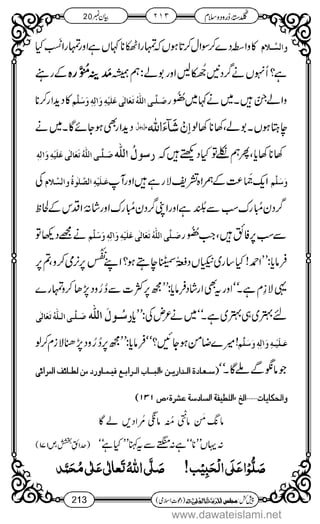 بیان نمبر 20 ۲۱۳ گلدستہ دُرود و سلام
والسَّلام کا واسطہ دے کر سوال کرتا ہوں کہ تمہارا کھانا کہاں ہے اور تمہارا شب کیا
ہے؟ اُنہوں نے گردنیں جُھکا لیں اور بولے: ہم ہمیشہ مَدِینۂ مُنَوَّرہ کے رہنے
والے جن ہیں۔ میں نے کہا میں حُضُور صَلَّی اللّٰہُ تَعَالٰی عَلَیْہِ وَاٰلِہٖ وَسَلَّم کا دیدار کرنا
چاہتا ہوں۔ بولے، کھانا کھا لو اِنْ شَآءَاللّٰہ دیدار بھی ہو جائے گا۔ میں نے
کھانا کھایا، پھر ہم نکلے تو کیا دیکھتے ہیں کہ رسولُ اللّٰہ صَلَّی اللّٰہُ تَعَالٰی عَلَیْہِ وَاٰلِہٖ
وَسَلَّم ایک جماعت کے ہمراہ تشریف لا رہے ہیں اور آپ عَلَیْہِ الصَّلٰوۃُ وَالسَّلام کی
گردن مُبارک سب سے بلند ہے اور اپنی گردن مُبارک اور شانۂ اقدس کے لحاظ
سے سب پر فائق ہیں، جب حُضُور صَلَّی اللّٰہُ تَعَالٰی عَلَیْہِ وَاٰلِہٖ وَسَلَّم نے مجھے دیکھا تو
فرمایا: ”احمد! کیا ساری نیکیاں دفعۃً سمیٹنا چاہتے ہو؟ اپنے نفس پر نرمی کرو، تم پر
یہی لازم ہے۔“ اور یہ بھی ارشاد فرمایا: ”مجھ پر کثرت سے دُرود پڑھا کرو تمہارے
لئے یہی بہتر ہے۔“ میں نے عرض کی: ”یَارَسُوْلَ اللّٰہ صَلَّی اللّٰہُ تَعَالٰی
عَلَیْہِ وَاٰلِہٖ وَسَلَّم! میرے ضامن ہو جائیں؟“ فرمایا: ”مجھ پر دُرود پڑھنا لازم کرلو
جو مانگو گے ملے گا۔“ (سعادۃ الدارین، الباب الرابع فیماورد من لطائف المرائی
والحکایات۔۔۔الخ، اللطیفۃ السادسۃ عشرۃ، ص ۱۳۱)
مانگ مَن مانتی مُنہ مانگی مُرادیں لے گا
نہ یہاں ”نا“ ہے نہ منگتے سے یہ کہنا ”کیا ہے“ (حدائقِ بخشش، ص ۱۷۱)
صَلُّوْا عَلَی الْحَبِیْب! صَلَّی اللّٰہُ تَعَالٰی عَلٰی مُحَمَّد
پیش کش: مجلس اَلْمَدِیْنَۃُ الْعِلْمِیَّۃ (دعوتِ اسلامی) 213
www.dawateislami.net